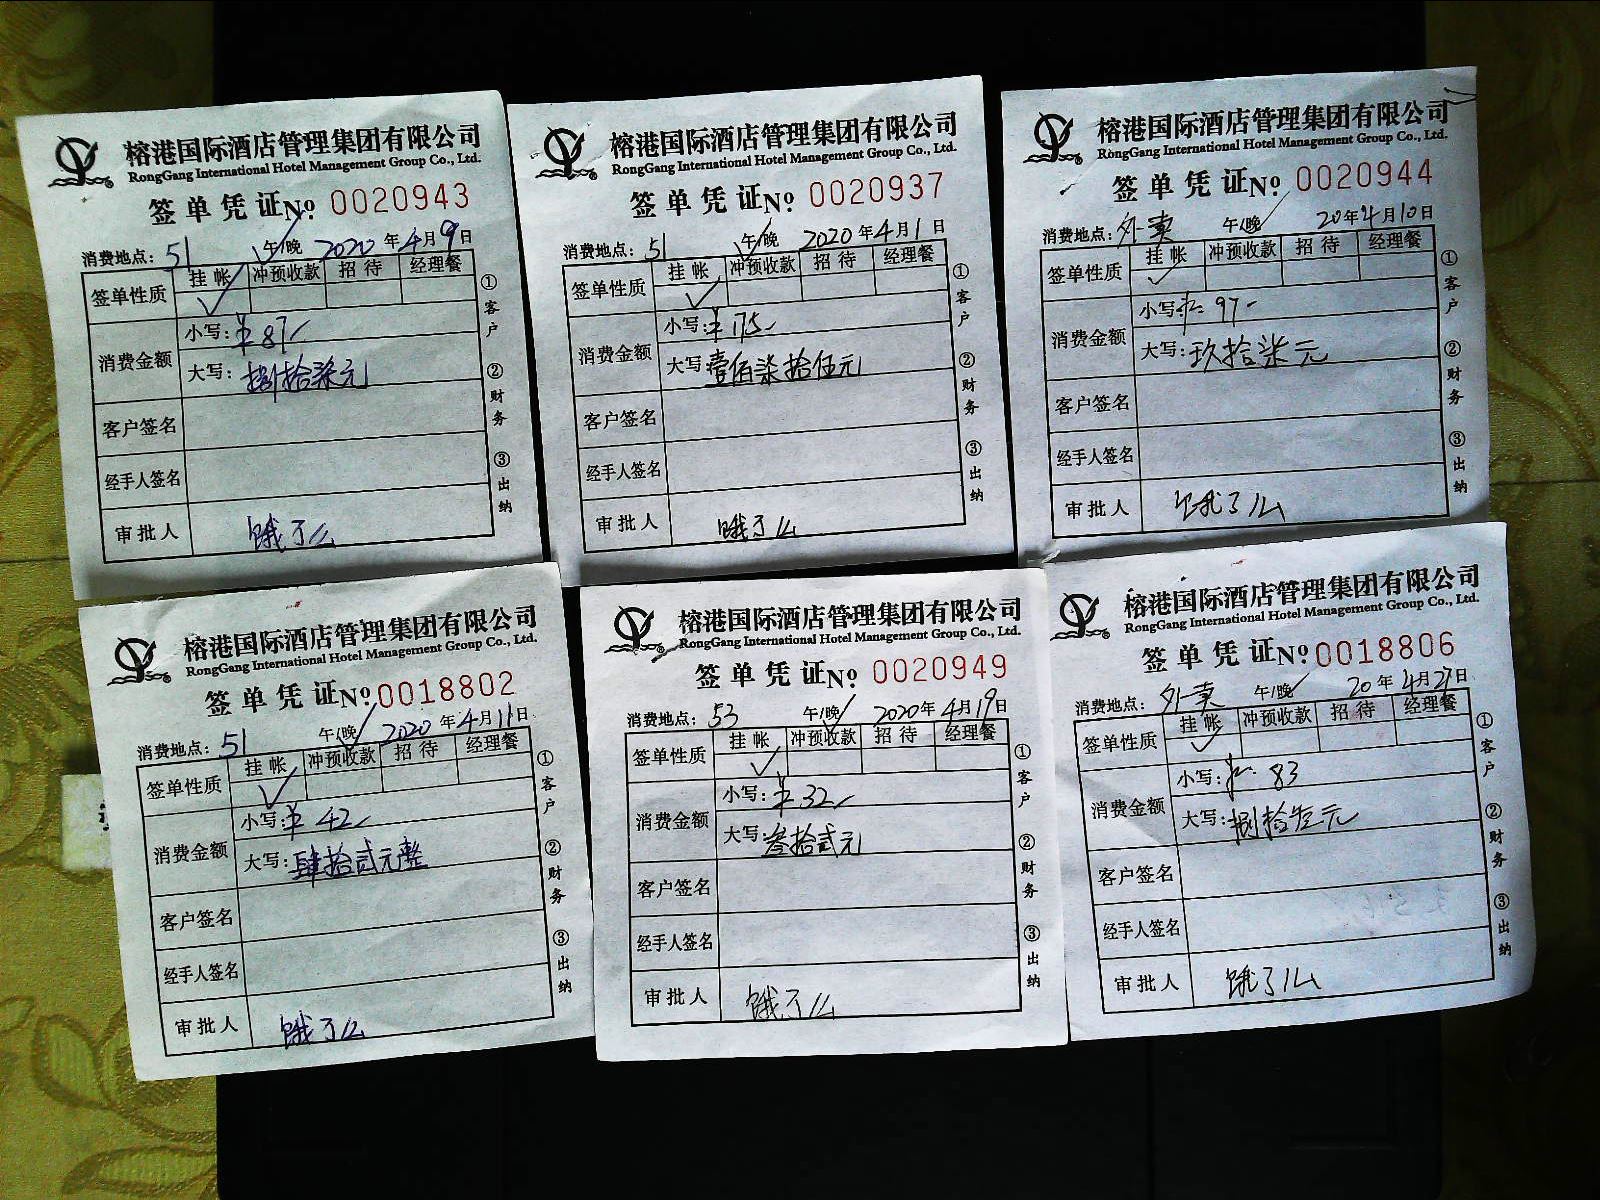 榕港国际酒店管理集团有限公司
RongGang International Hotel Management Group Co., Ltd.
签单凭证 No. 0020943
消费地点: 51 午/晚 2020年4月9日
签单性质 挂帐 冲预收款 招待 经理餐
✓
消费金额 小写: ¥87-
大写: 捌拾柒元
客户签名
经手人签名
审批人 饿了么
①客户 ②财务 ③出纳
榕港国际酒店管理集团有限公司
RongGang International Hotel Management Group Co., Ltd.
签单凭证 No. 0020937
消费地点: 51 午/晚 2020年4月1日
签单性质 挂帐 冲预收款 招待 经理餐
✓
消费金额 小写: ¥175-
大写: 壹佰柒拾伍元
客户签名
经手人签名
审批人 饿了么
①客户 ②财务 ③出纳
榕港国际酒店管理集团有限公司
RongGang International Hotel Management Group Co., Ltd.
签单凭证 No. 0020944
消费地点: 外卖 午/晚 20年4月10日
签单性质 挂帐 冲预收款 招待 经理餐
✓
消费金额 小写: ¥97-
大写: 玖拾柒元
客户签名
经手人签名
审批人 饿了么
①客户 ②财务 ③出纳
榕港国际酒店管理集团有限公司
RongGang International Hotel Management Group Co., Ltd.
签单凭证 No. 0018802
消费地点: 51 午/晚 2020年4月11日
签单性质 挂帐 冲预收款 招待 经理餐
✓
消费金额 小写: ¥42-
大写: 肆拾贰元整
客户签名
经手人签名
审批人 饿了么
①客户 ②财务 ③出纳
榕港国际酒店管理集团有限公司
RongGang International Hotel Management Group Co., Ltd.
签单凭证 No. 0020949
消费地点: 53 午/晚 2020年4月19日
签单性质 挂帐 冲预收款 招待 经理餐
✓
消费金额 小写: ¥32-
大写: 叁拾贰元
客户签名
经手人签名
审批人 饿了么
①客户 ②财务 ③出纳
榕港国际酒店管理集团有限公司
RongGang International Hotel Management Group Co., Ltd.
签单凭证 No. 0018806
消费地点: 外卖 午/晚 20年4月27日
签单性质 挂帐 冲预收款 招待 经理餐
✓
消费金额 小写: ¥83
大写: 捌拾叁元
客户签名
经手人签名
审批人 饿了么
①客户 ②财务 ③出纳